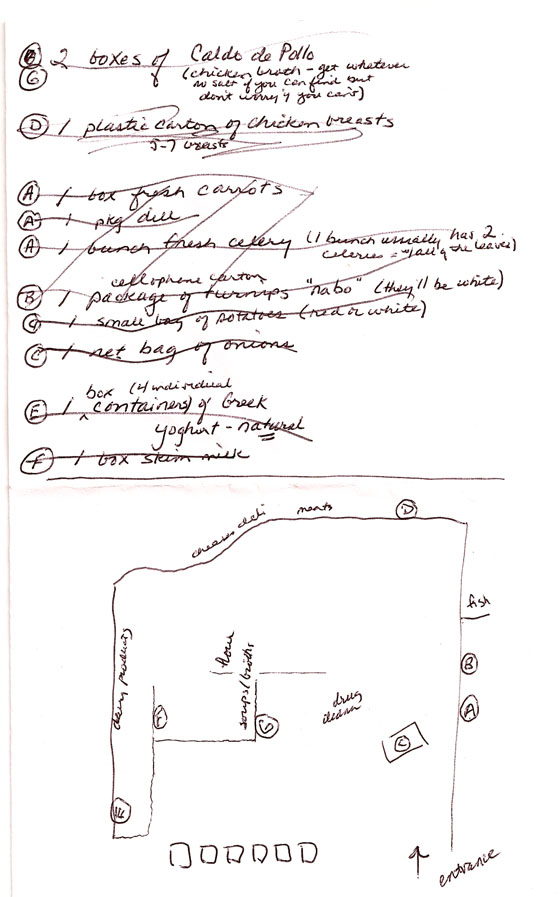 G 2 boxes of Caldo de Pollo
(chicken broth - get whatever
no salt if you can find but
don't worry if you can't)
D 1 plastic carton of chicken breasts
5-7 breasts
A 1 box fresh carrots
A 1 pkg dill
A 1 bunch fresh celery (1 bunch usually has 2
celeries = "fall of the leaves)
cellophane carton
B 1 package of turnips "nabo" (they'll be white)
C 1 small bag of potatoes (red or white)
C 1 net bag of onions
box (4 individual
E 1 containers) of Greek
yoghurt - natural
F 1 box skim milk
cheeses deli meats D
fish
dairy products
flour
soups/broths
B
A
drug
F
G
C
E
entrance